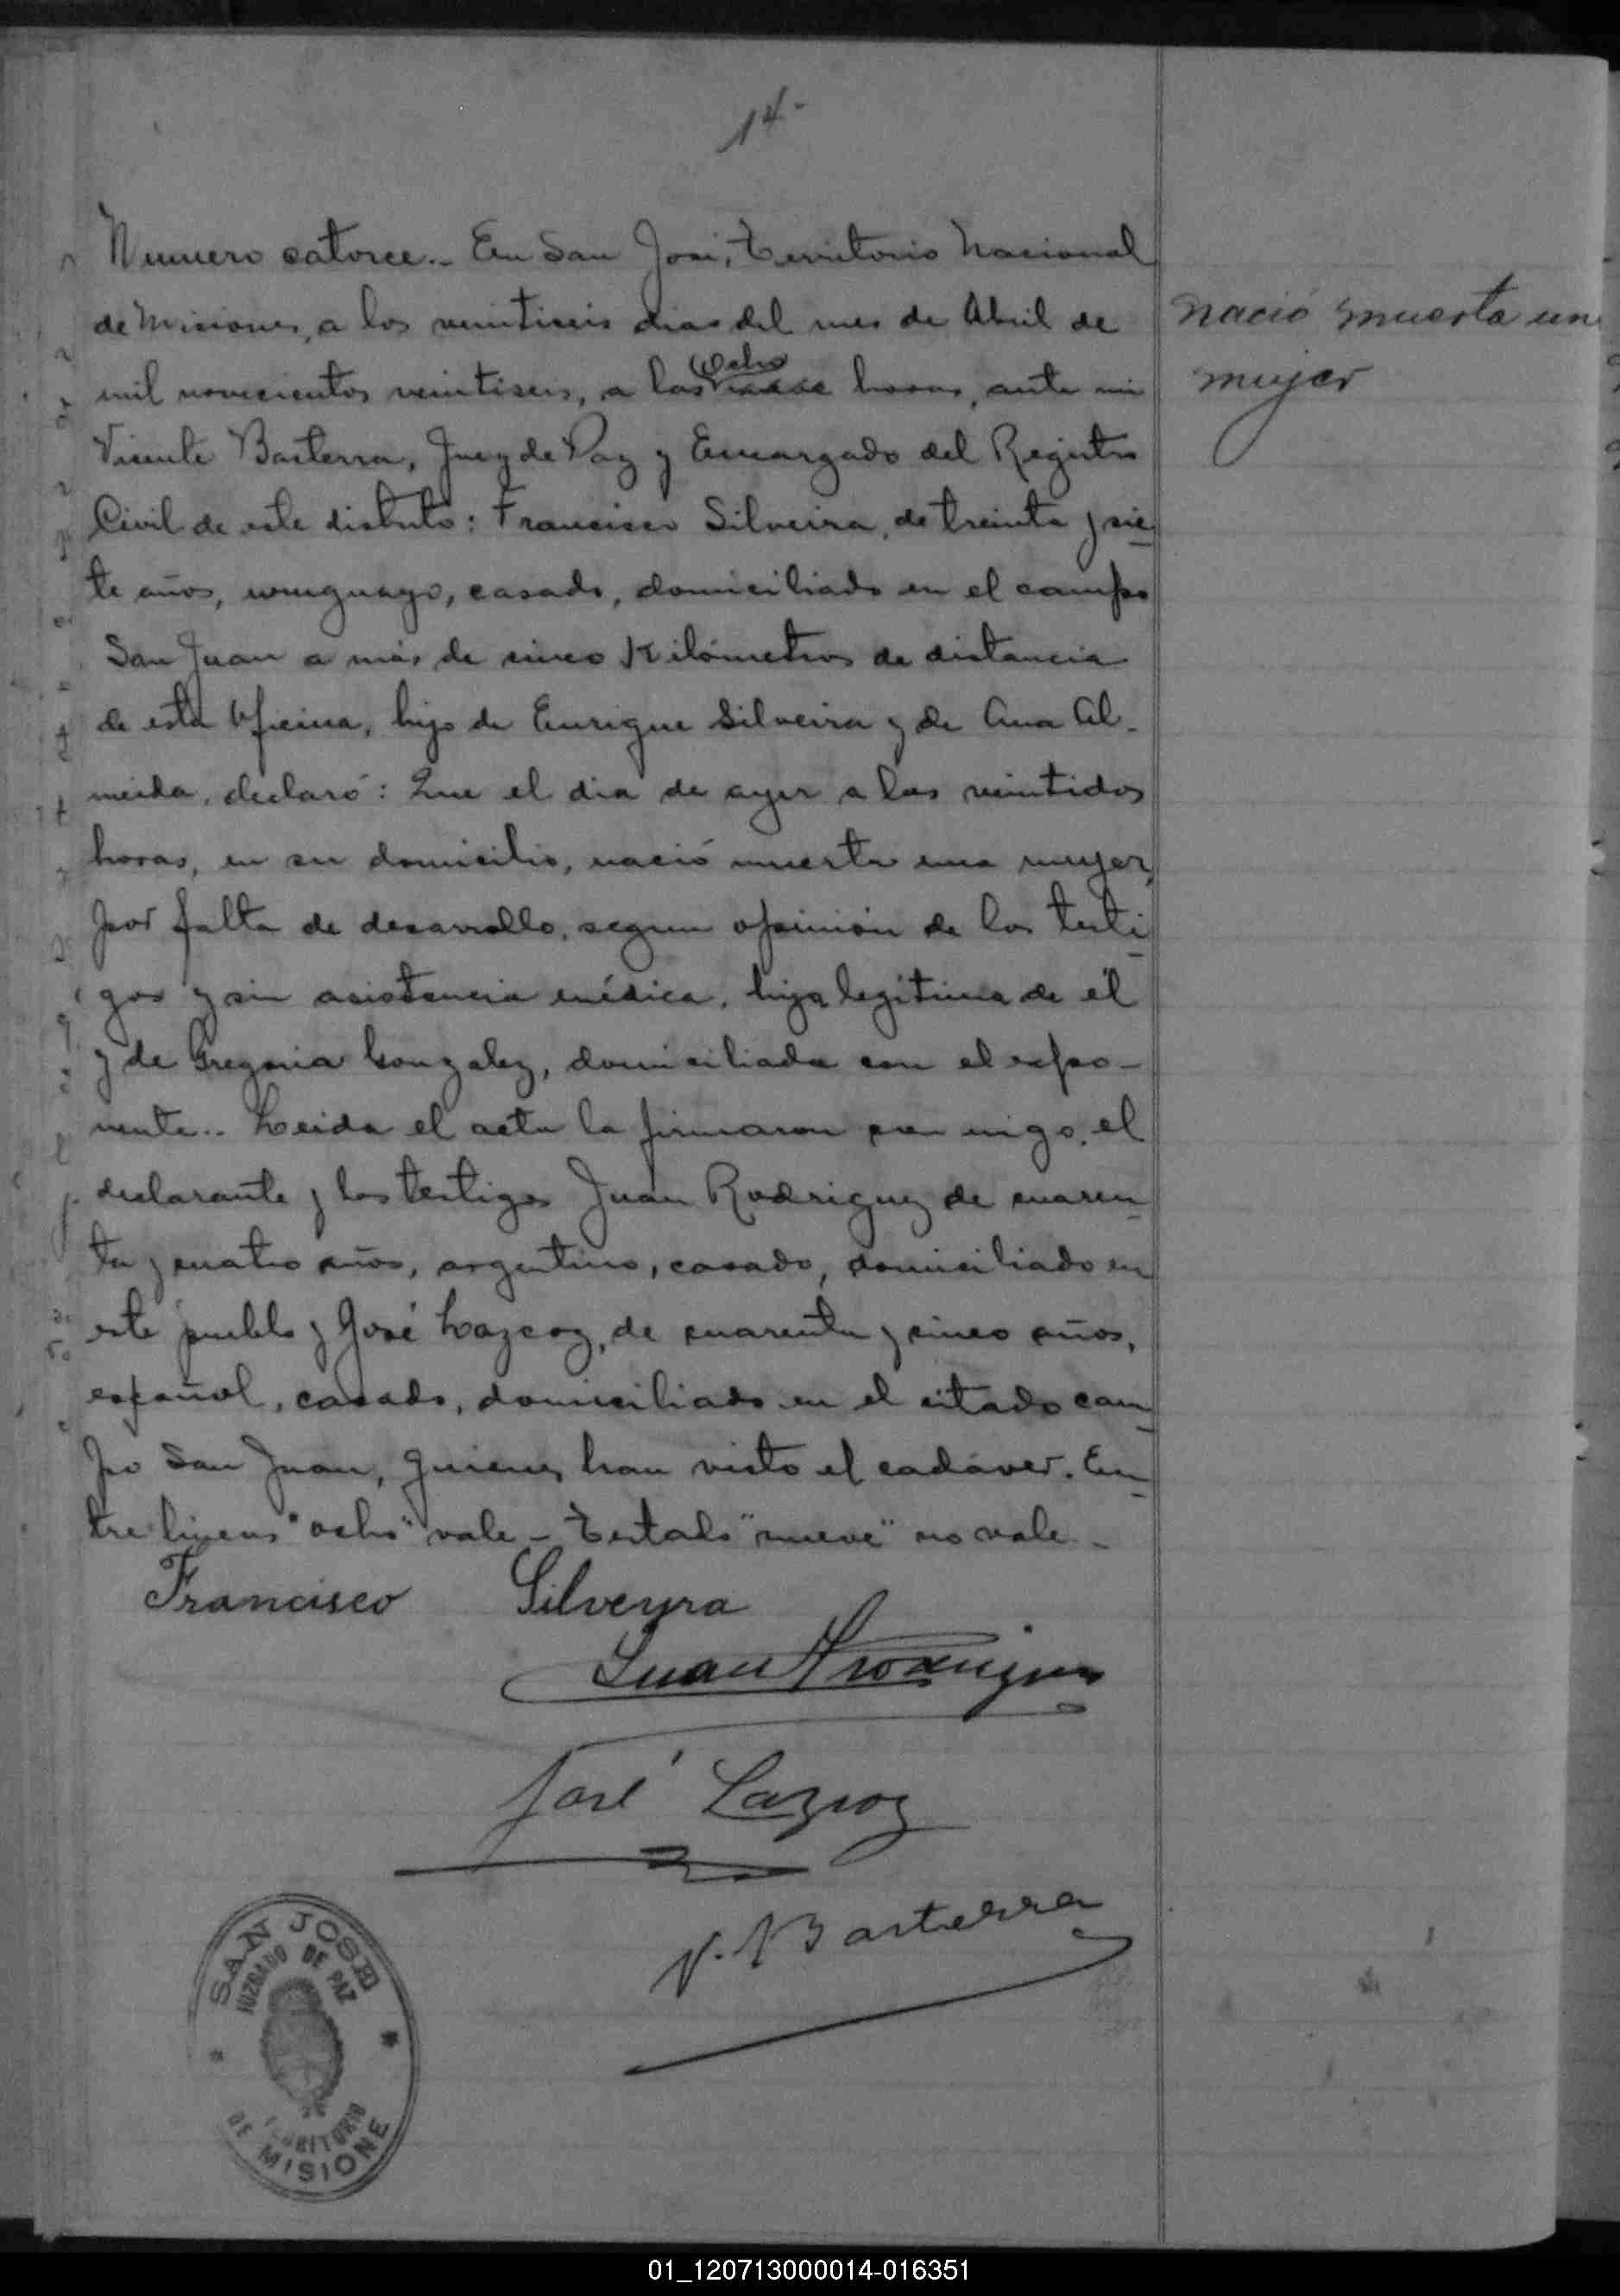 14-
Numero catorce.- En San José, Territorio Nacional
de Misiones, a los veintiseis dias del mes de Abril de
mil novecientos veintiseis, a las ocho nueve horas, ante mi
Vicente Basterra, Juez de Paz y Encargado del Registro
Civil de este distrito: Francisco Silveira, de treinta y sie
te años, uruguayo, casado, domiciliado en el campo
San Juan a más de cinco Kilómetros de distancia
de esta Oficina, hijo de Enrique Silveira y de Ana Al-
meida, declaró: Que el dia de ayer a las veintidos
horas, en su domicilio, nació muerta una mujer,
por falta de desarrollo, segun opinión de los testi
gos y sin asistencia médica, hija legítima de él
y de Gregoria Gonzalez, domiciliada con el expo-
nente.- Leida el acta la firmaron con migo, el
declarante y los testigos Juan Rodriguez de cuaren
ta y cuatro años, argentino, casado, domiciliado en
este pueblo y José Lazcoz, de cuarenta y cinco años,
español, casado, domiciliado en el citado cam
po San Juan, quienes han visto el cadáver. En
tre lineas "ocho" vale - Testado "nueve" no vale -
nació muerta un
mujer
Francisco Silveyra
Juan Rodriguez
José Lazcoz
V. Basterra
SAN JOSE
JUZGADO DE PAZ
TERRITORIO
DE MISIONE
01_120713000014-016351